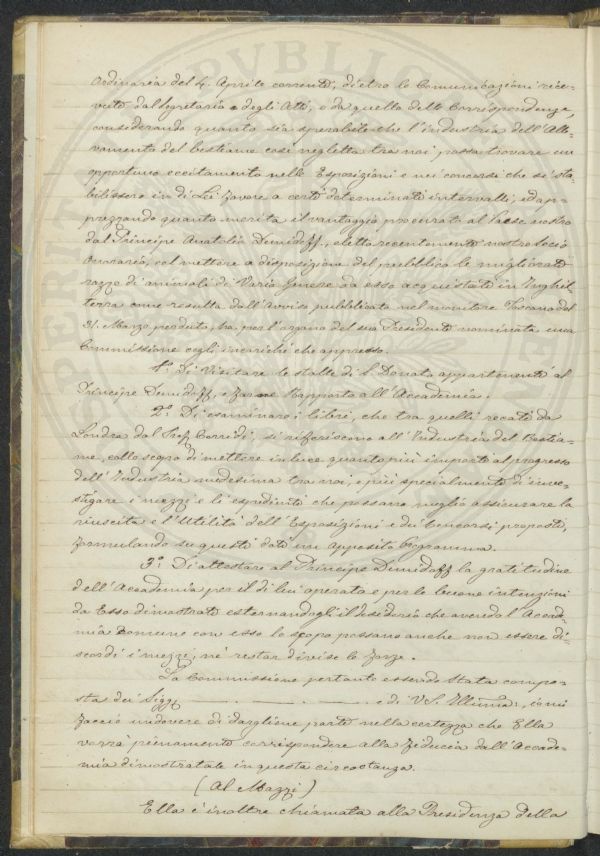 ordinaria del 4. Aprile corrente, dietro le Comunicazioni rice=
vute dal Segretario degli Atti, e da quello delle Corrispondenze,
considerando quanto sia sperabile che l'industria dell'Alle=
vamento del bestiame così negletta tra noi possa trovare un
opportuno eccitamento nelle Esposizioni e nei concorsi che si sta=
bilissero in di Lei favore a certi determinati intervalli, ed ap=
prezzando quanto merita il vantaggio procurato al Paese nostro
dal Principe Anatolio Demidoff, eletto recentemente nostro Socio
Onorario, col mettere a disposizione del pubblico le migliorate
razze di animali di Vario Genere da esso acquistati in Inghil
terra come resulta dall'avviso pubblicato nel monitore Toscano del
31. Marzo perduto, ha per l'organo del suo Presidente nominata una
Commissione cogli incarichi che appresso.
1.º Di Visitare le stalle di S. Donato appartenenti al
Principe Demidoff, e farne Rapporto all'Accademia.
2.º Di esaminare i libri, che tra quelli recati da
Londra dal Prof. Corridi, si riferiscono all'Industria del Bestia=
me, collo scopo di mettere in luce quanto più importi al progresso
dell'Industria medesima tra noi, e più specialmente d'inve=
stigare i mezzi e li espedienti che possano meglio assicurare la
riuscita e l'Utilità dell'Esposizioni e dei Concorsi proposti,
formulando su questi dati un apposito Programma.
3.º Di attestare al Principe Demidoff la gratitudine
dell'Accademia per il di lui operato e per le buone intenzioni
da Esso dimostrate esternandogli il desiderio che avendo l'Acca=
mia comune con esso lo scopo possano anche non essere di=
scordi i mezzi, nè restar divise le forze.
La Commissione pertanto essendo stata compo=
sta dei Sigg. e di V.S. Illuma, io mi
faccio un dovere di dargliene parte nella certezza che Ella
vorrà pienamente corrispondere alla fiducia dall'Accade=
mia dimostratale in questa circostanza.
(Al Mazzi)
Ella è inoltre chiamata alla Presidenza della